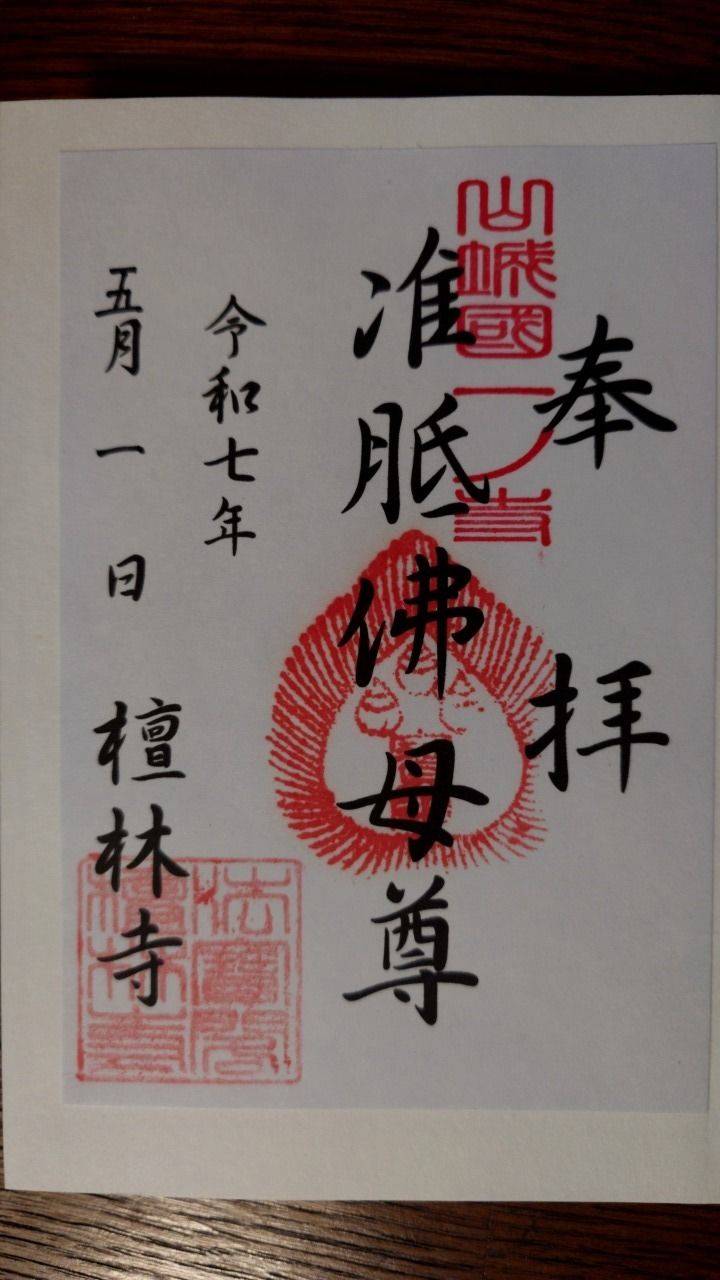 奉拝
山城國一ノ寺
准胝佛母尊
令和七年
五月一日 檀林寺
檀林寺